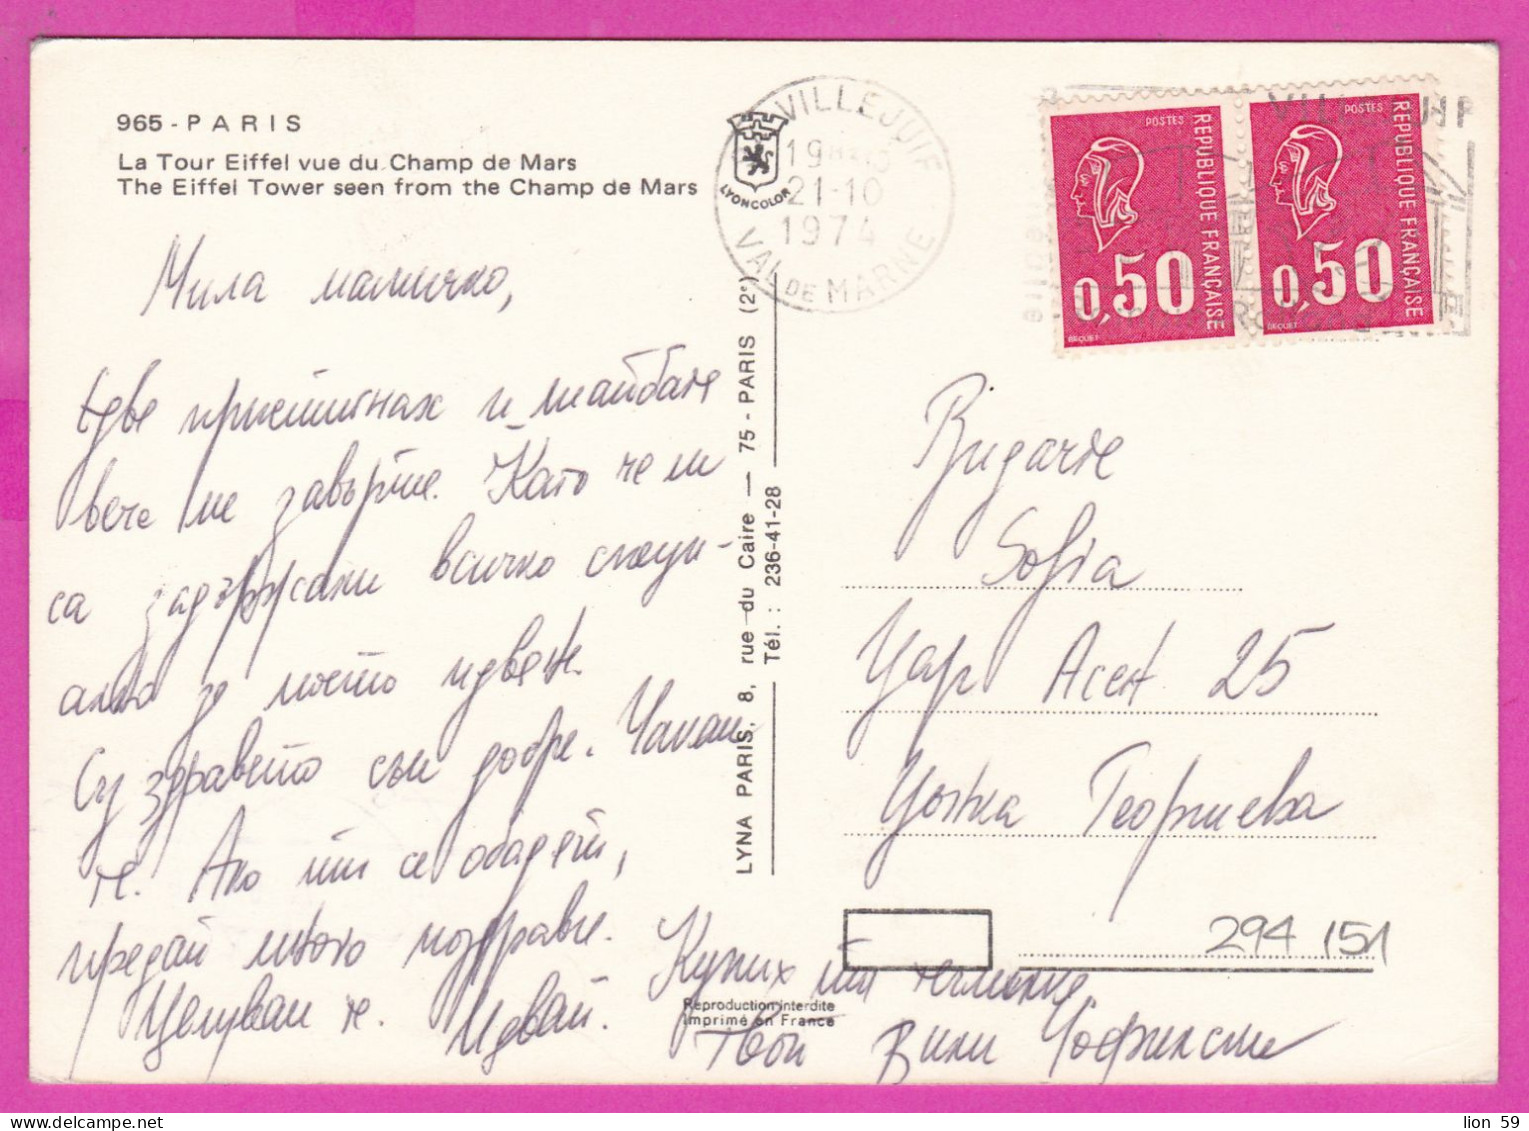 965 - PARIS
La Tour Eiffel vue du Champ de Mars
The Eiffel Tower seen from the Champ de Mars
LYONCOLOR
VILLEJUIF
21-10
1974
VAL DE MARNE
POSTES
REPUBLIQUE FRANÇAISE
0,50
BEQUET
POSTES
REPUBLIQUE FRANÇAISE
0,50
BEQUET
Мила маличко,
едве пристигнах и
вече ме завърте. Като че ли
са задържали всичко
за моето идване.
здравето съм добре. Чакам
те. Ако ти се обадят,
предай много поздрави.
Целувам те. Идвай.
Купих ти
Твой Вили
LYNA PARIS, 8, rue du Caire — 75 - PARIS (2e)
Tél. : 236-41-28
Reproduction interdite
Imprimé en France
Bulgarie
Sofia
Цар Асен 25
Цонка Георгиева
294 151
lion 59